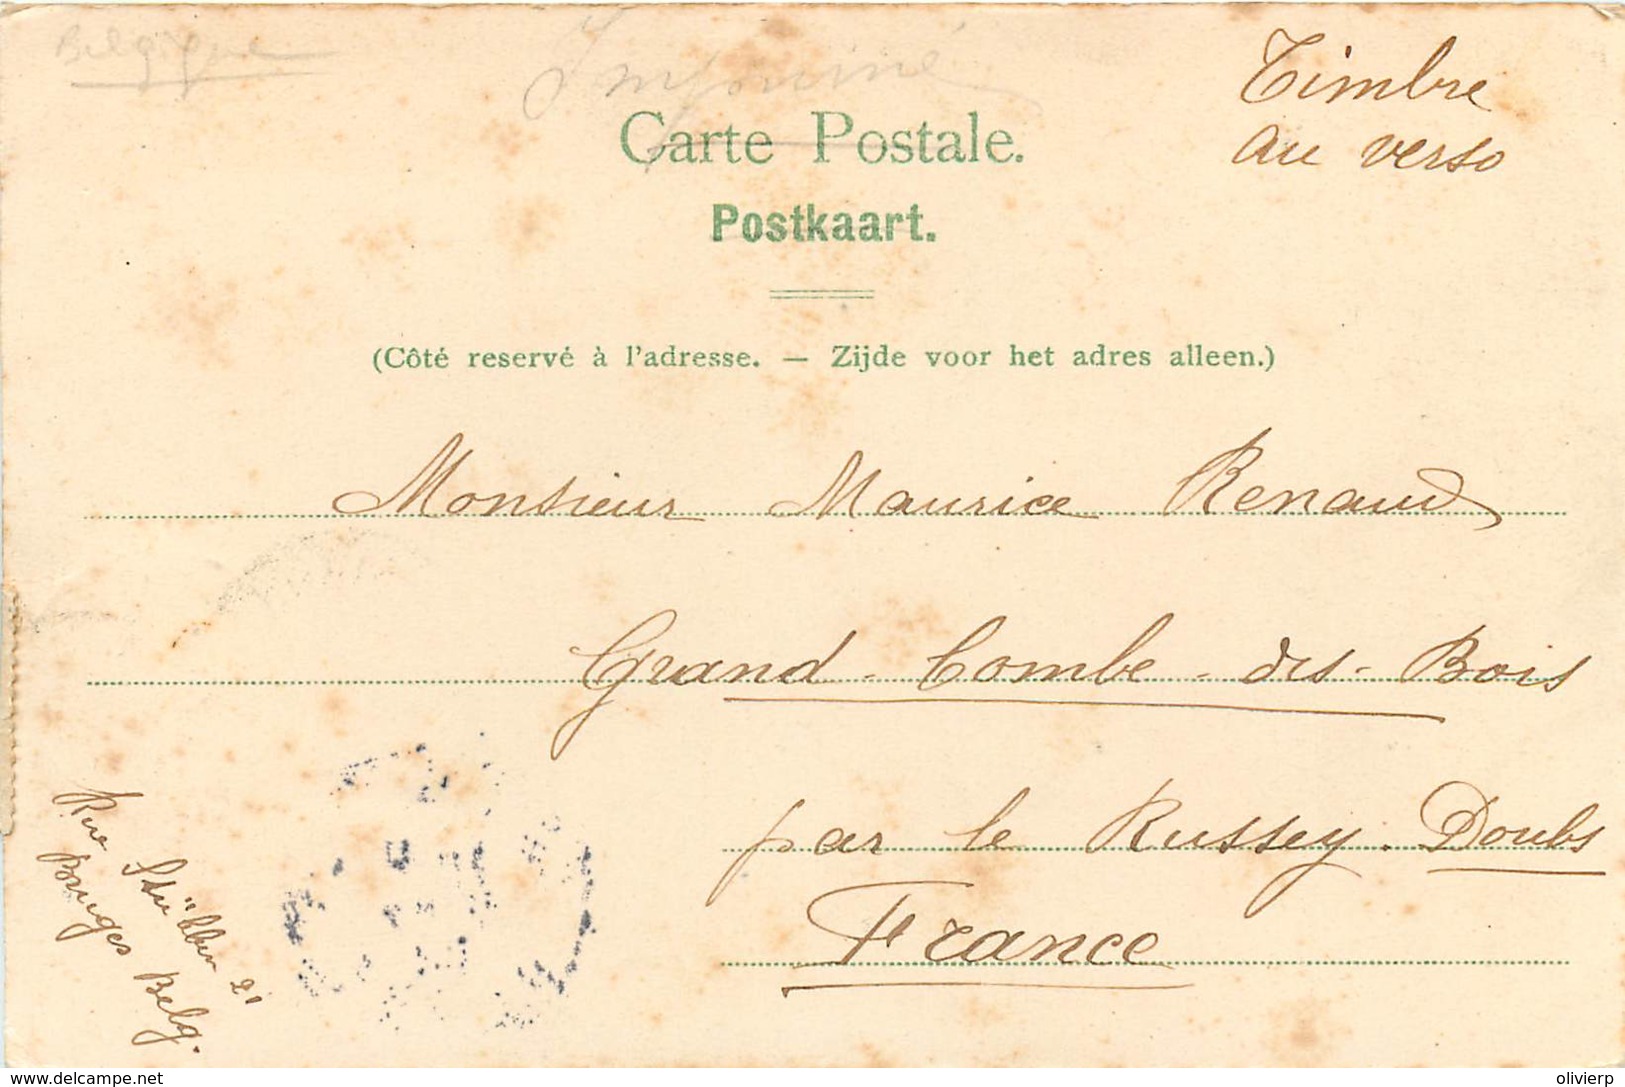 Belgique
Imprimé
Timbre
au verso
Carte Postale.
Postkaart.
(Côté reservé à l'adresse. — Zijde voor het adres alleen.)
Monsieur Maurice Renaud
Grand-Combe-des-Bois
par le Russey. Doubs
France
Rue Stübben 21
Bruges Belg.
www.delcampe.net
olivierp